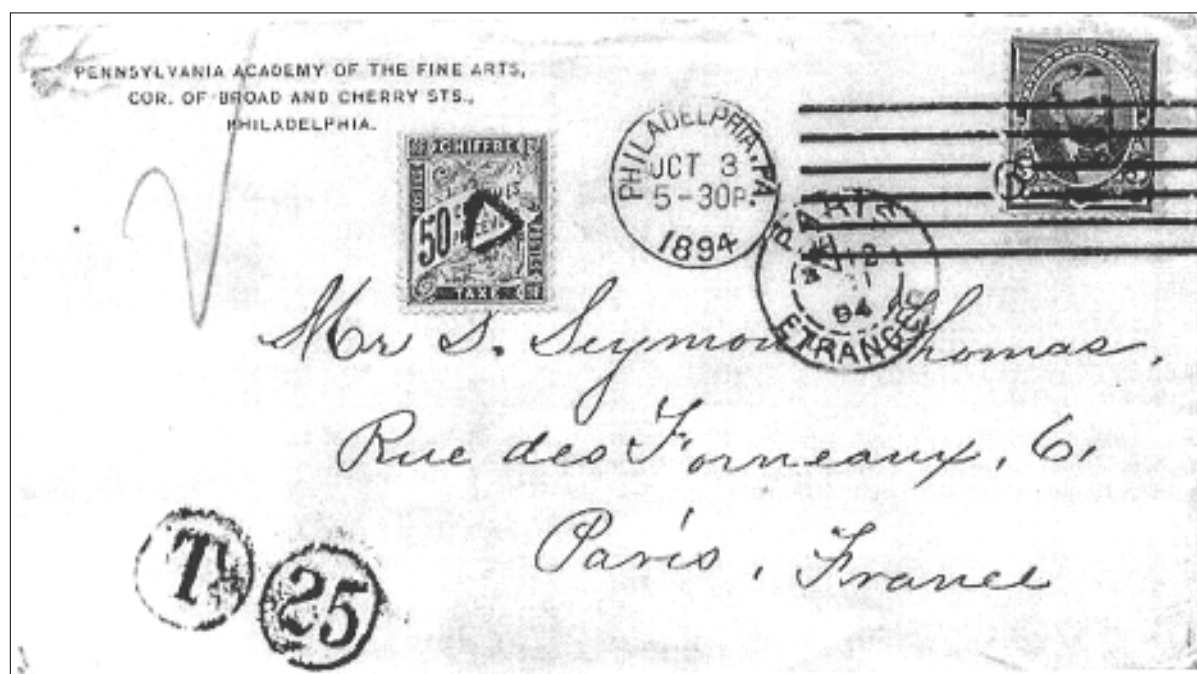 PENNSYLVANIA ACADEMY OF THE FINE ARTS,
COR. OF BROAD AND CHERRY STS.,
PHILADELPHIA.
CHIFFRE
50
TAXE
PHILADELPHIA, PA.
OCT 3
5-30P.
1894
PARIS
94
ETRANGER
Mr S. Seymour Thomas,
Rue des Forneaux, 6,
Paris, France
T
25